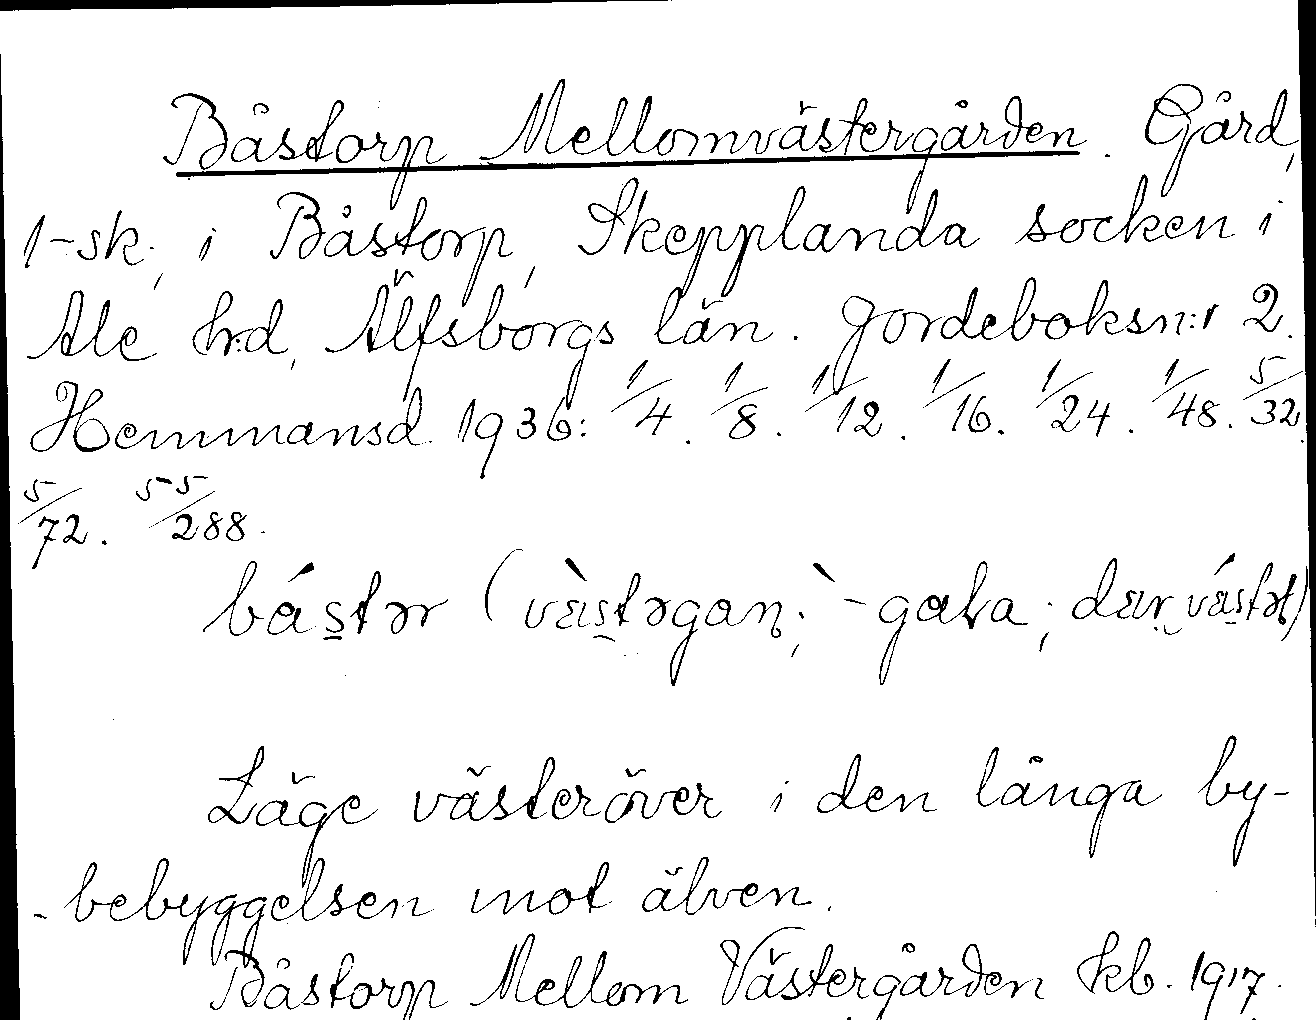 Båstorp Mellomvästergården. Gård,
1-sk., i Båstorp, Skepplanda socken i
Ale hrd, Älfsborgs län. Jordeboksn:r 2.
Hemmansd. 1936: 1/4. 1/8. 1/12. 1/16. 1/24. 1/48. 5/32.
5/72. 55/288.
bástər (vàstəgaɳ; `-gaɽa; dær vástət)
Läge västeröver i den långa by-
- bebyggelsen mot älven.
Båstorp Mellom Västergården kb. 1917.